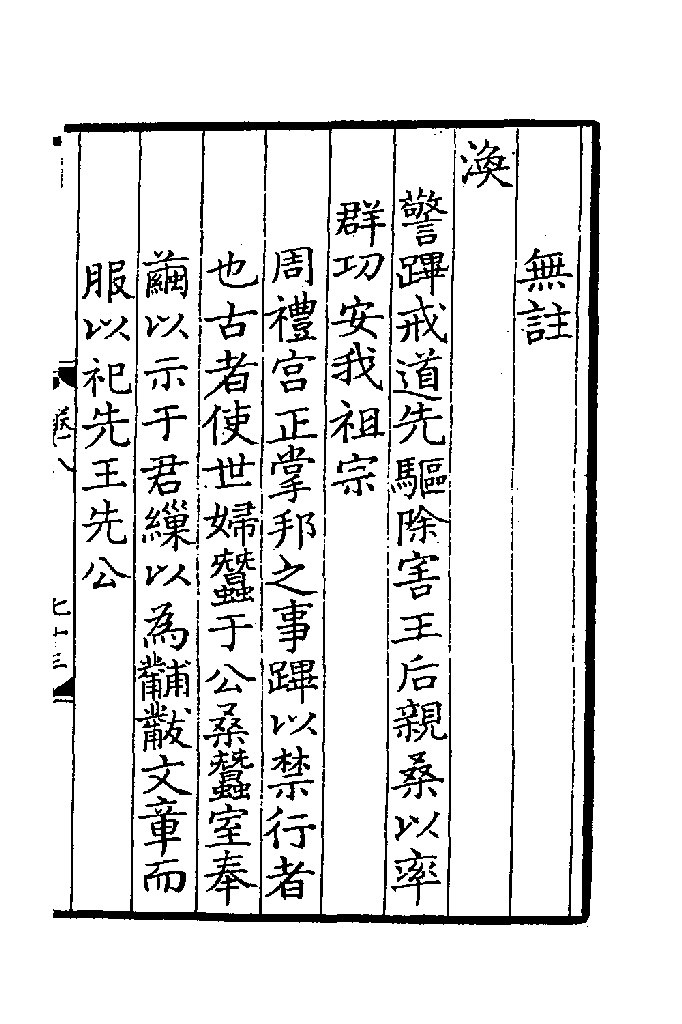 無註
渙
警蹕戒道先驅除害王后親桑以率
群功安我祖宗
周禮宫正掌邦之事蹕以禁行者
也古者使世婦蠶于公桑蠶室奉
繭以示于君繅以為黼黻文章而
服以祀先王先公
七十三